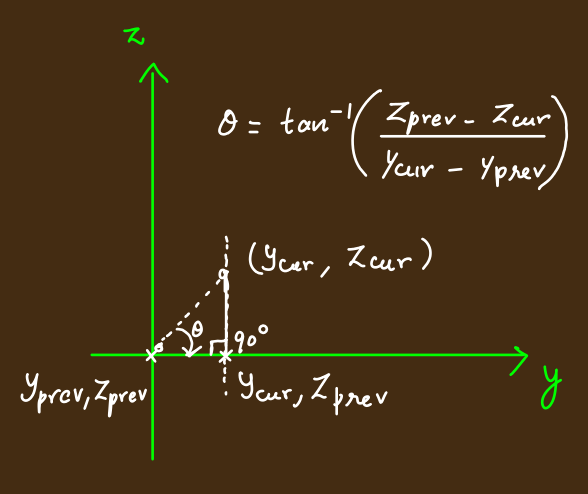 z
θ = tan⁻¹((Zprev - Zcur)/(Ycur - Yprev))
(ycur, Zcur)
θ
90°
yprev, Zprev
ycur, Zprev
y